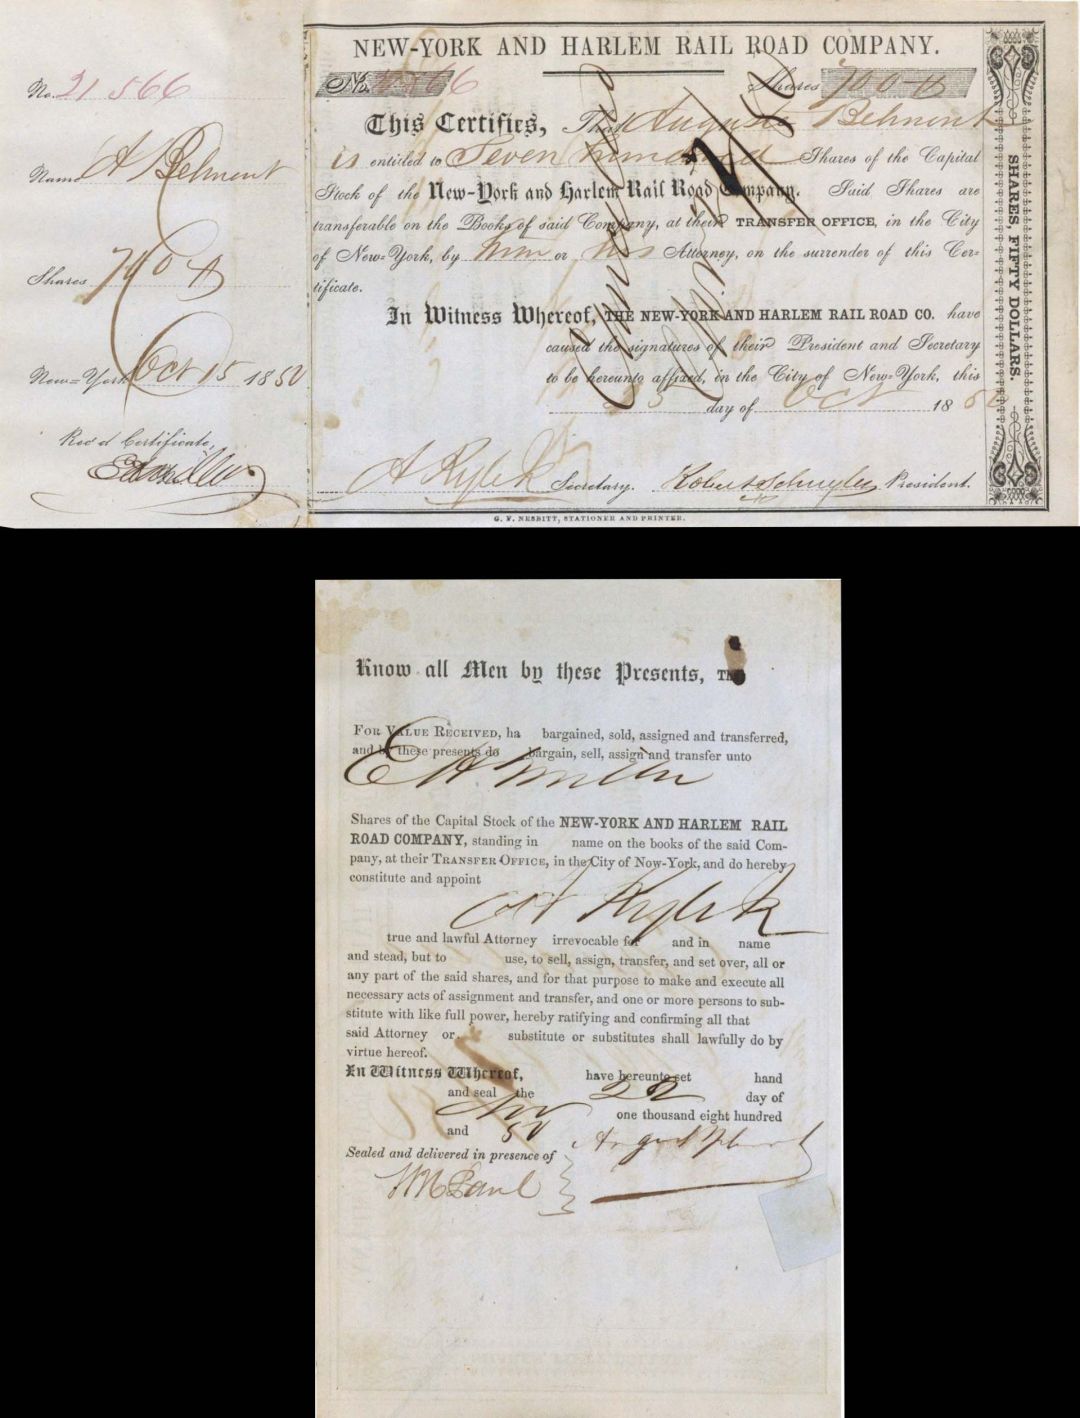 No. 21 566
Name A Belmont
Shares 700
New=York Oct 15 1850
Rec'd Certificate,
NEW-YORK AND HARLEM RAIL ROAD COMPANY.
No. Shares 700
This Certifies, That August Belmont
is entitled to Seven hundred Shares of the Capital
Stock of the New-York and Harlem Rail Road Company. Said Shares are
transferable on the Books of said Company, at their TRANSFER OFFICE, in the City
of New=York, by him or his Attorney, on the surrender of this Cer=
tificate.
In Witness Whereof, THE NEW-YORK AND HARLEM RAIL ROAD CO. have
caused the signatures of their President and Secretary
to be hereunto affixed, in the City of New=York, this
15 day of Oct 18 50
Secretary. Robert Schuyler President.
SHARES, FIFTY DOLLARS.
G. F. NESBITT, STATIONER AND PRINTER.
Know all Men by these Presents,
FOR VALUE RECEIVED, ha bargained, sold, assigned and transferred,
and by these presents do bargain, sell, assign and transfer unto
E H Miller
Shares of the Capital Stock of the NEW-YORK AND HARLEM RAIL
ROAD COMPANY, standing in name on the books of the said Com-
pany, at their TRANSFER OFFICE, in the City of Now-York, and do hereby
constitute and appoint
true and lawful Attorney irrevocable for and in name
and stead, but to use, to sell, assign, transfer, and set over, all or
any part of the said shares, and for that purpose to make and execute all
necessary acts of assignment and transfer, and one or more persons to sub-
stitute with like full power, hereby ratifying and confirming all that
said Attorney or substitute or substitutes shall lawfully do by
virtue hereof.
In Witness Whereof, have hereunto set hand
and seal the 22 day of
Nov one thousand eight hundred
and 50
Sealed and delivered in presence of August Belmont